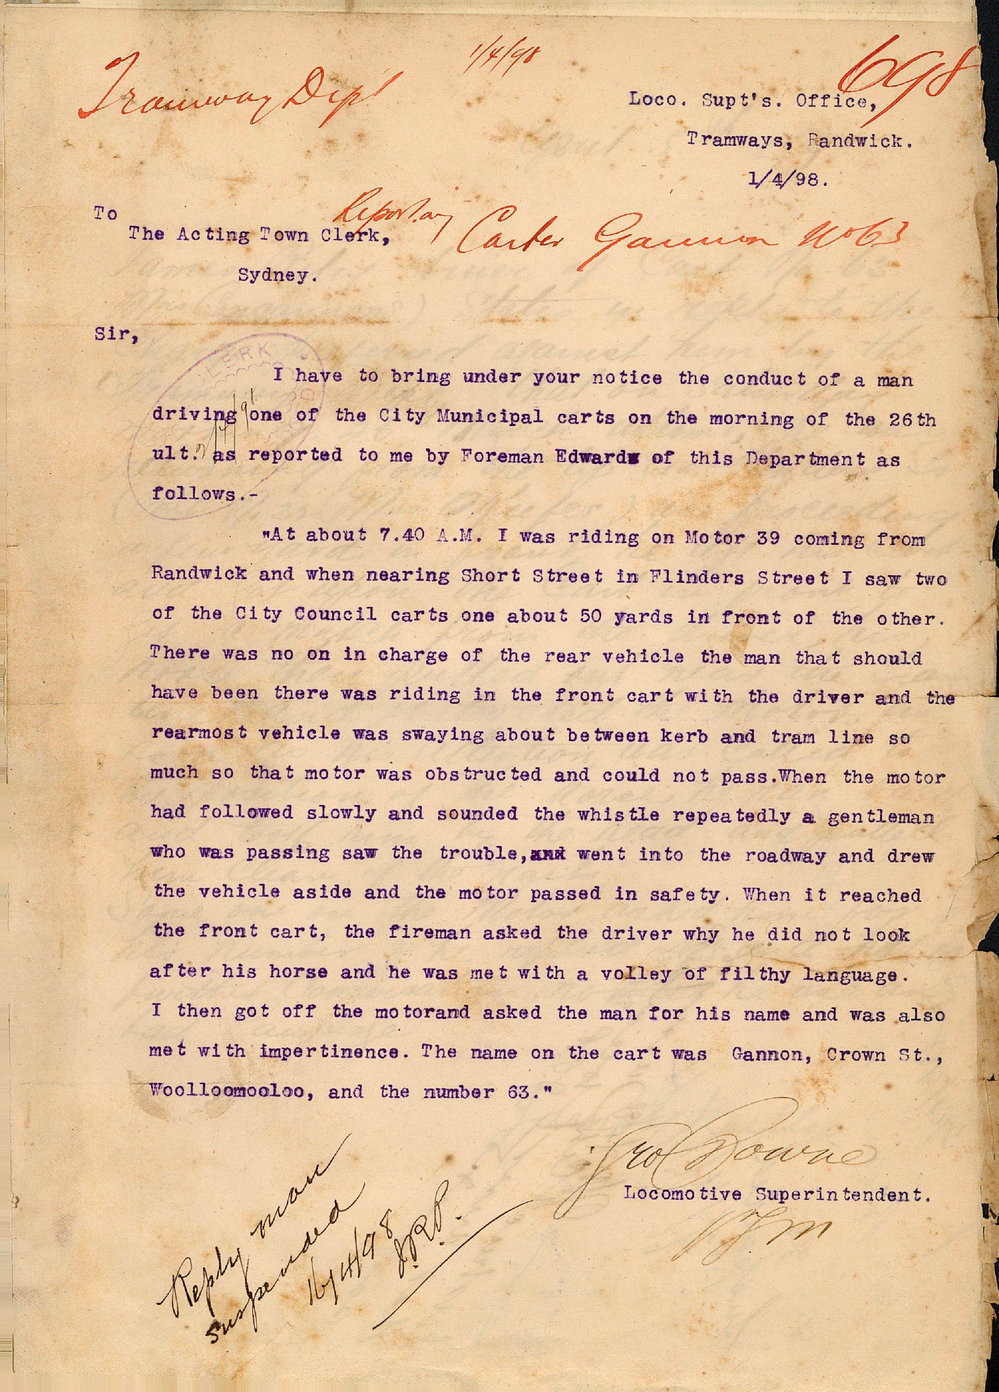 1/4/98
698
Tramway Dept
Loco. Supt's. Office,
Tramways, Randwick.
1/4/98.
To
Reporting
The Acting Town Clerk,
Carter Gannon No 63
Sydney.
Sir,
CLERK
I have to bring under your notice the conduct of a man
driving one of the City Municipal carts on the morning of the 26th
ult. as reported to me by Foreman Edwards of this Department as
follows.-
"At about 7.40 A.M. I was riding on Motor 39 coming from
Randwick and when nearing Short Street in Flinders Street I saw two
of the City Council carts one about 50 yards in front of the other.
There was no on in charge of the rear vehicle the man that should
have been there was riding in the front cart with the driver and the
rearmost vehicle was swaying about between kerb and tram line so
much so that motor was obstructed and could not pass.When the motor
had followed slowly and sounded the whistle repeatedly a gentleman
who was passing saw the trouble,and went into the roadway and drew
the vehicle aside and the motor passed in safety. When it reached
the front cart, the fireman asked the driver why he did not look
after his horse and he was met with a volley of filthy language.
I then got off the motorand asked the man for his name and was also
met with impertinence. The name on the cart was Gannon, Crown St.,
Woolloomooloo, and the number 63."
Geo Downe
Locomotive Superintendent.
Reply man
suspended
16/4/98